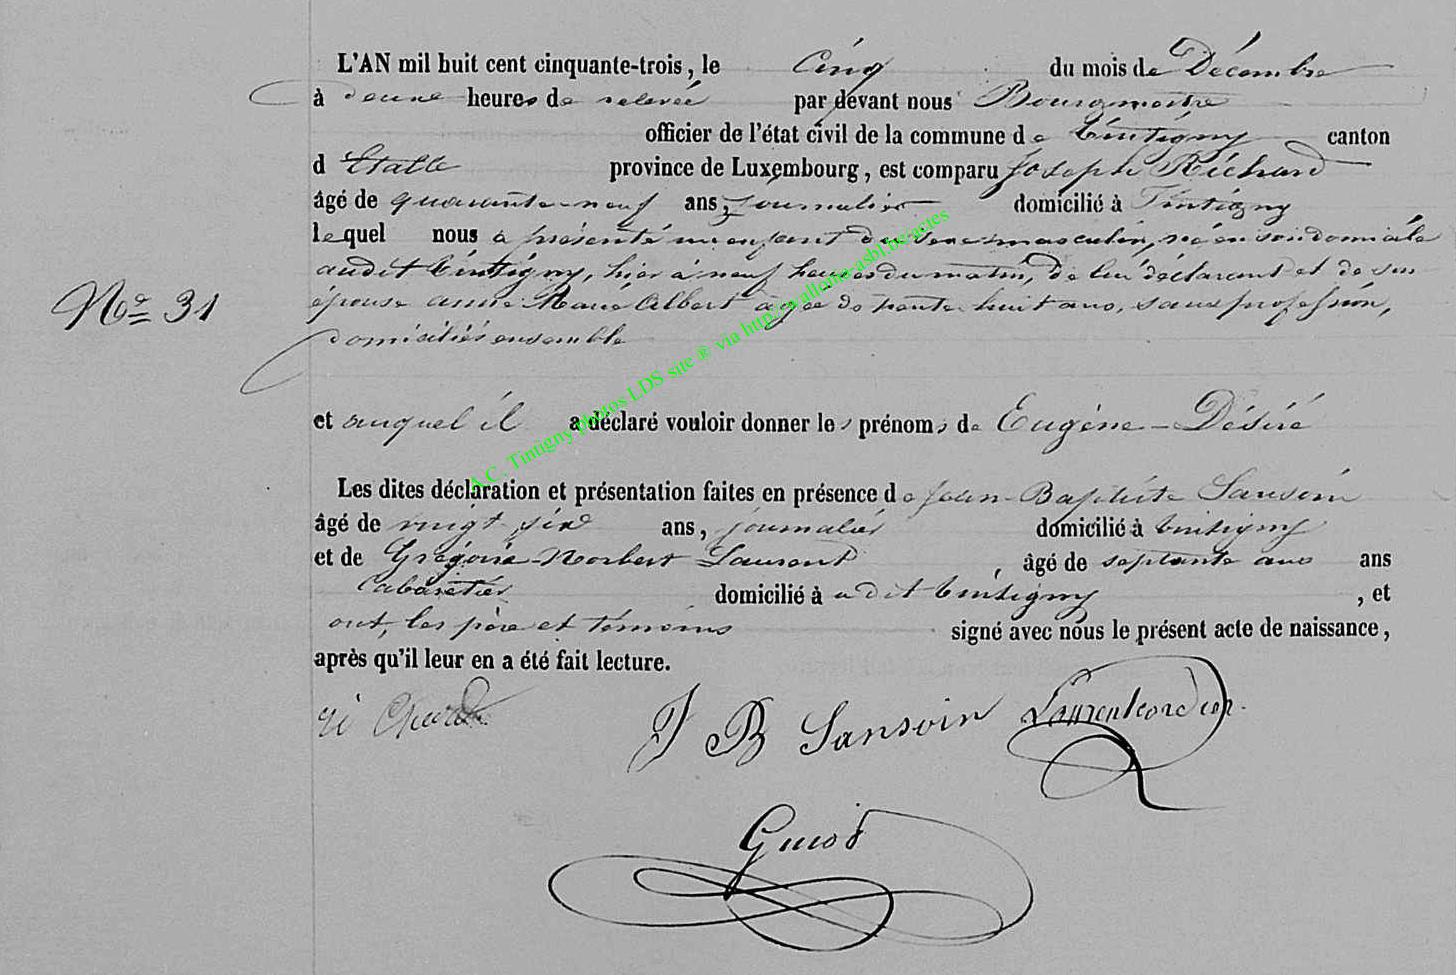 L'AN mil huit cent cinquante-trois, le Cinq du mois de Décembre
à deux heures de relevée par devant nous Bourgmestre
officier de l'état civil de la commune de Tintigny canton
d'Etalle province de Luxembourg, est comparu Joseph Richard
âgé de quarante-neuf ans, journalier domicilié à Tintigny
lequel nous a présenté un enfant du sexe masculin, né en son domicile
audit Tintigny, hier à neuf heures du matin, de lui déclarant et de son
N° 31
épouse Anne Marie Albert âgée de trente huit ans, sans profession,
domiciliés ensemble
et auquel il a déclaré vouloir donner les prénoms de Eugène-Désiré
Les dites déclaration et présentation faites en présence de Jean-Baptiste Sansoin
âgé de vingt six ans, journalier domicilié à Tintigny
et de Grégoire-Norbert Laurent, âgé de septante ans ans
Cabaretier domicilié à udit Tintigny, et
ont, les père et témoins signé avec nous le présent acte de naissance,
après qu'il leur en a été fait lecture.
J B Sansoin
Guiot
A.C. Tintigny photos LDS site ® via http://wallonia-asbl.be/actes